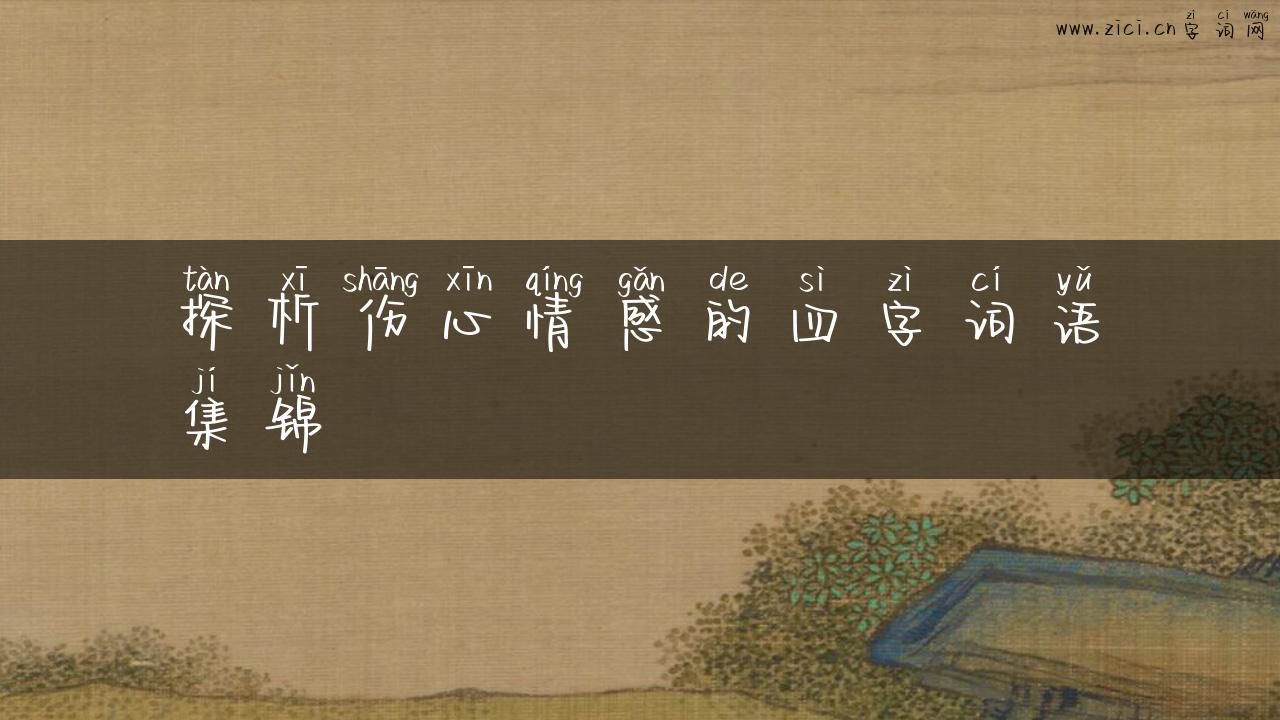 zì cí wǎng
www.zici.cn 字词网
tàn xī shāng xīn qíng gǎn de sì zì cí yǔ
探析伤心情感的四字词语
jí jǐn
集锦